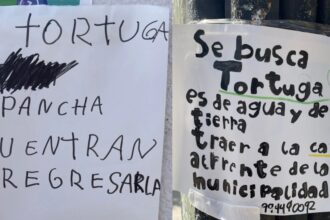 TORTUGA
PANCHA
UENTRAN
REGRESARLA
Se busca
Tortuga
es de agua y de
tierra
traer a la ca
al frente de la
municipalidad